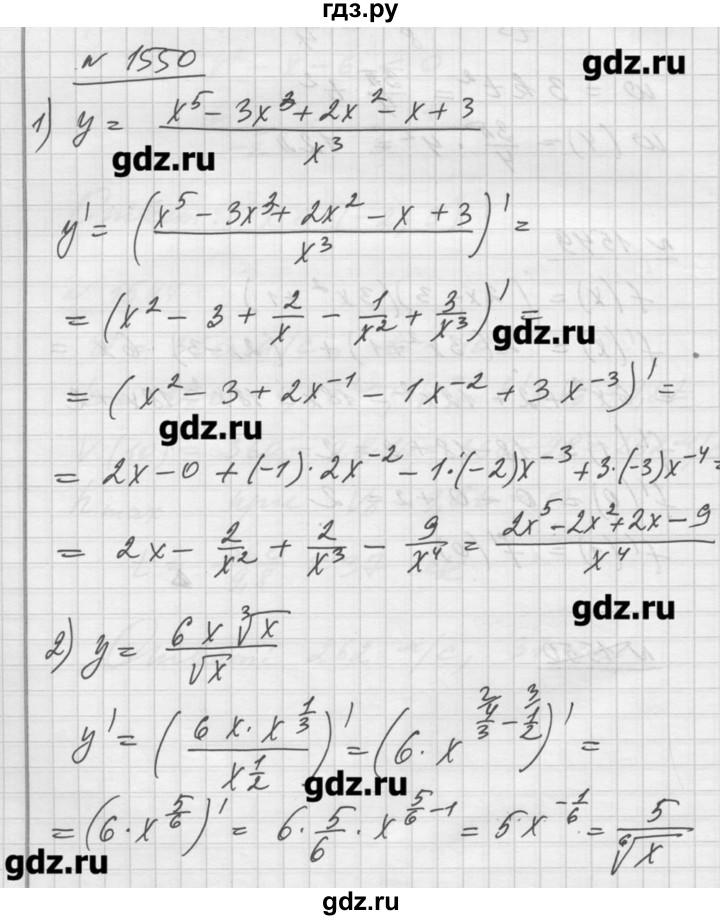 гдз.ру
№ 1550
gdz.ru
1) y = (x⁵ - 3x³ + 2x² - x + 3) / x³
gdz.ru
y' = ((x⁵ - 3x³ + 2x² - x + 3) / x³)' =
= (x² - 3 + 2/x - 1/x² + 3/x³)' =
gdz.ru
= (x² - 3 + 2x⁻¹ - 1x⁻² + 3x⁻³)' =
gdz.ru
= 2x - 0 + (-1)·2x⁻² - 1·(-2)x⁻³ + 3·(-3)x⁻⁴ =
= 2x - 2/x² + 2/x³ - 9/x⁴ = (2x⁵ - 2x² + 2x - 9) / x⁴
gdz.ru
2) y = 6x ∛x / √x
y' = (6x · x^(1/3) / x^(1/2))' = (6 · x^(4/3 - 1/2))' =
gdz.ru
= (6 · x^(5/6))' = 6 · 5/6 · x^(5/6 - 1) = 5x^(-1/6) = 5 / ⁶√x
gdz.ru
gdz.ru